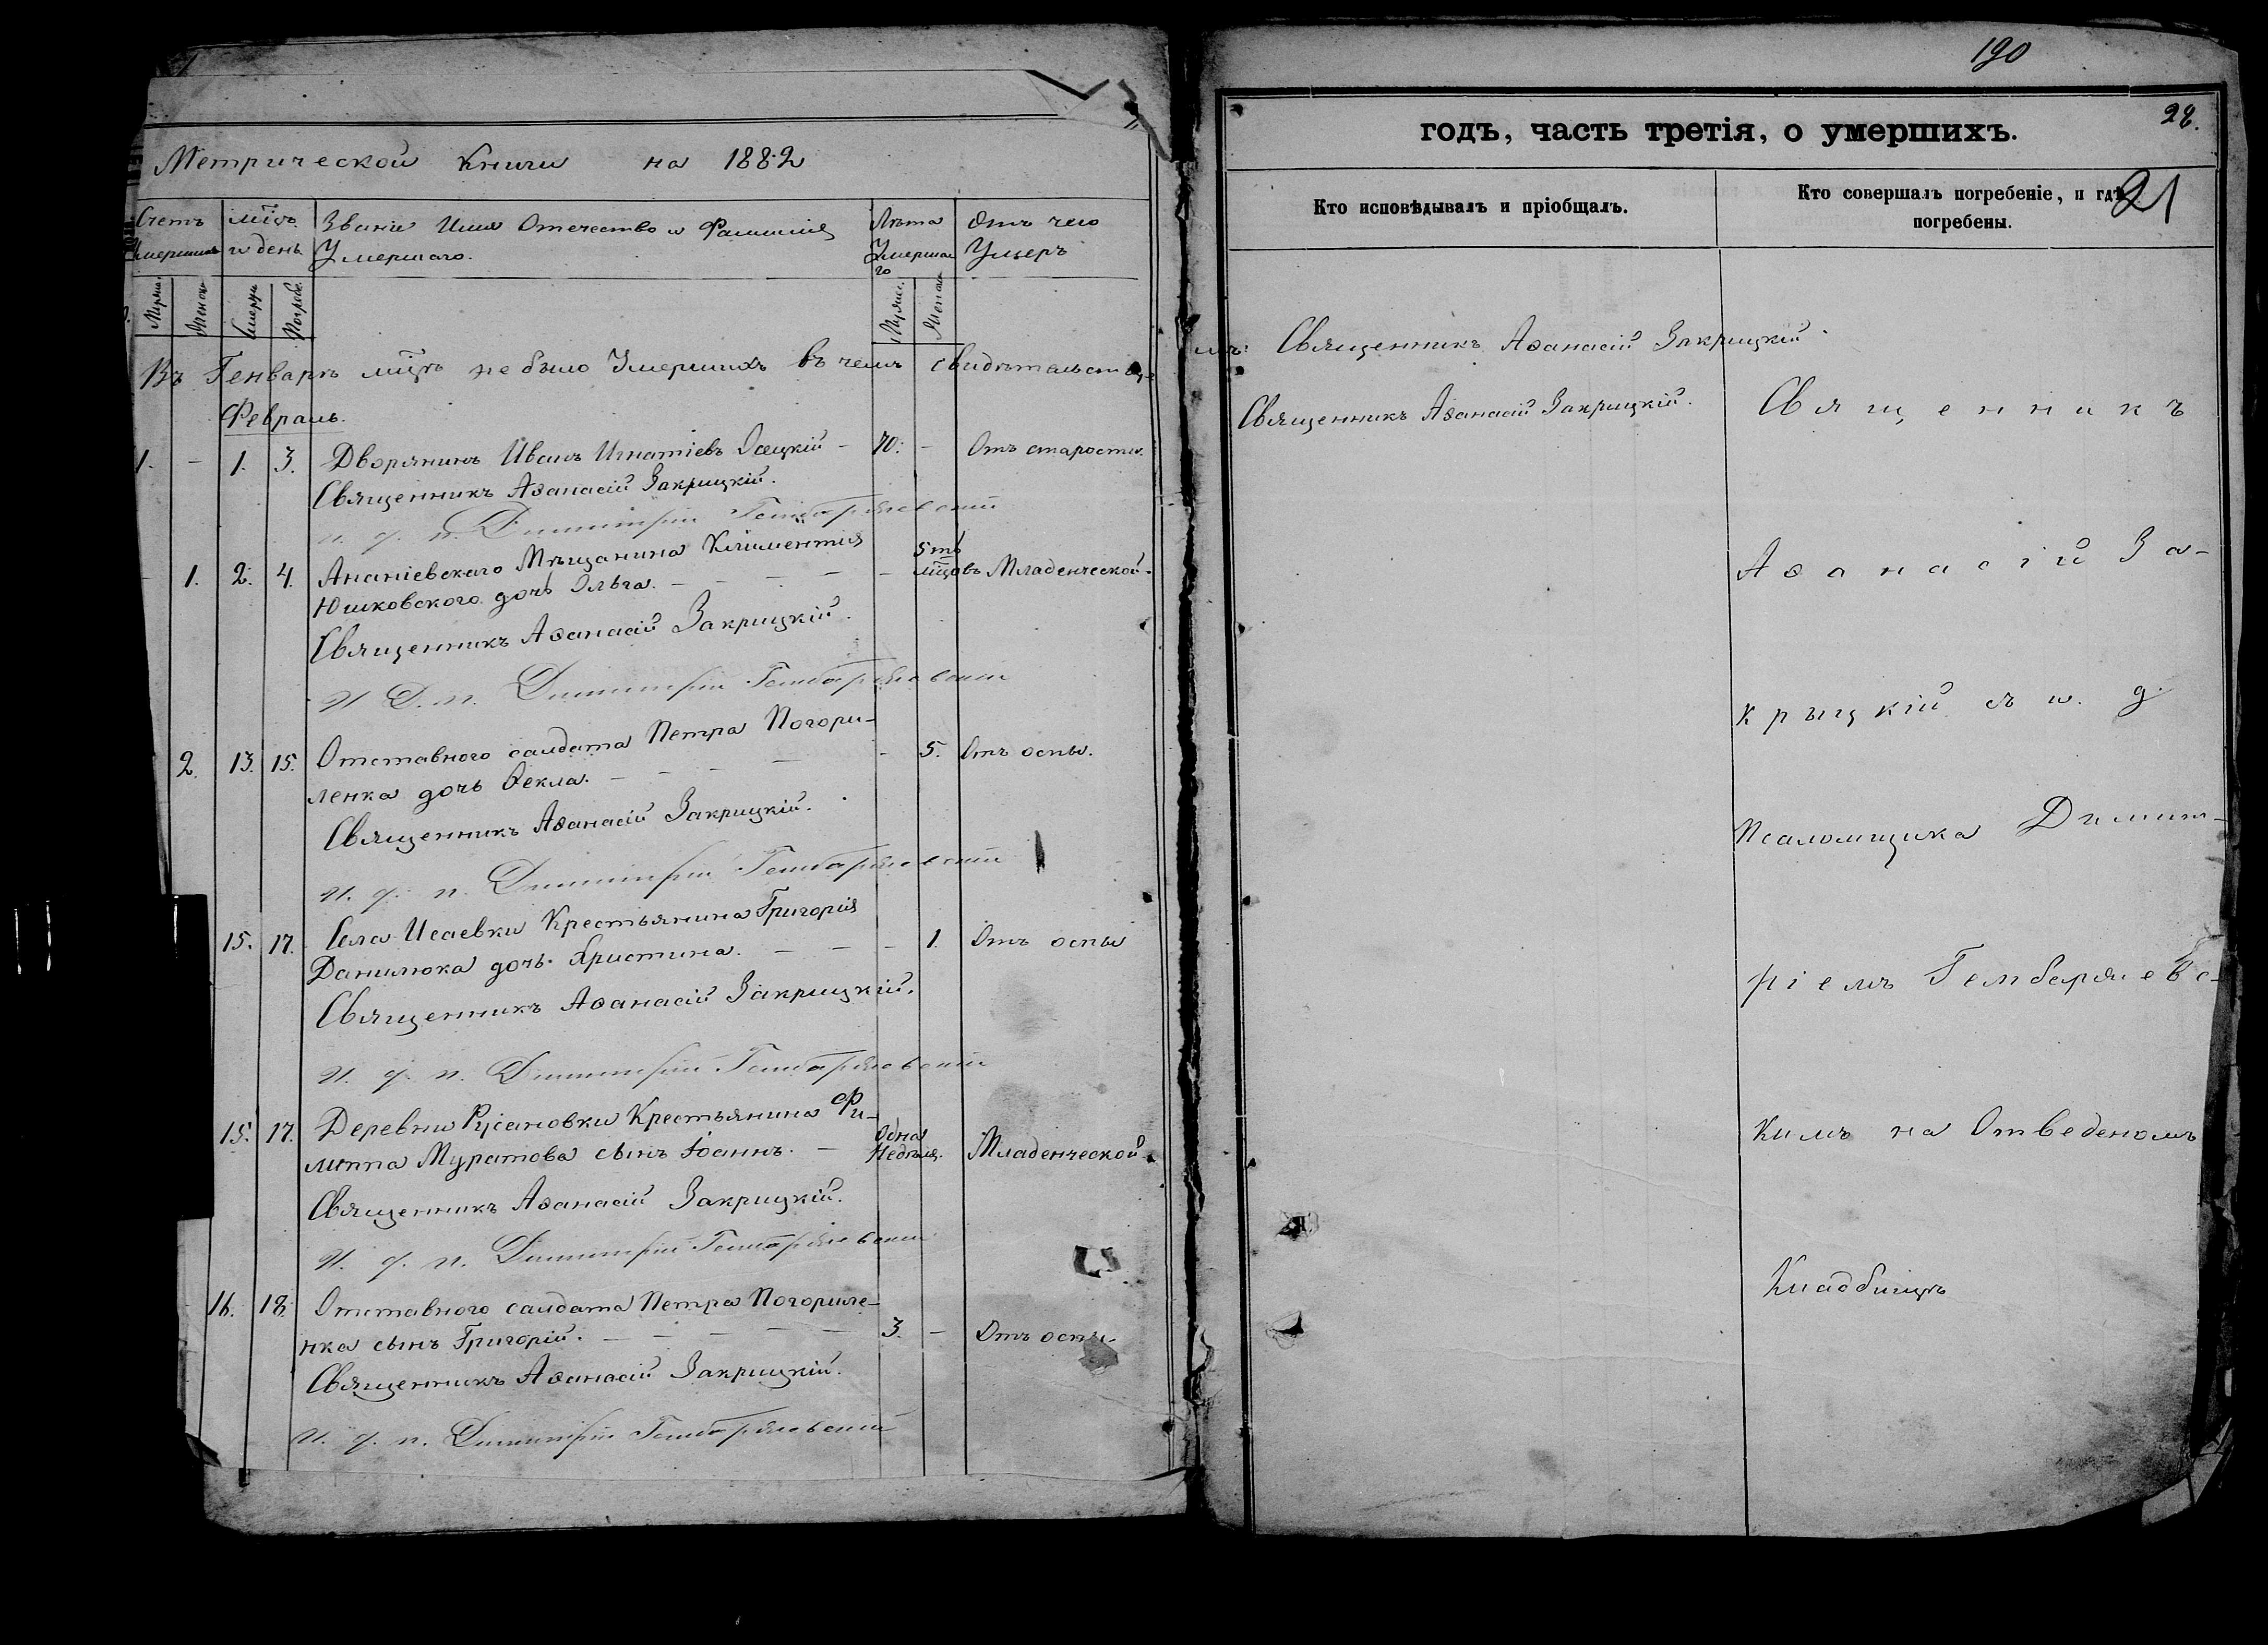 Метрической книги на 1882
Счетъ умершихъ
мѣс. и день
Званіе Имя Отечество и Фамилія Умершаго.
Лѣта Умершаго
Отъ чего Умеръ
Въ Генварѣ мцѣ не было Умершихъ въ чемъ свидѣтельству-
Февраль.
1. - 1. 3. Дворянинъ Иванъ Игнатіевъ - 70. - Отъ старости.
Священникъ Аѳанасій Закрицкій.
и. д. п. Димитрій Гембаржевскій
- 1. 2. 4. Ананіевскаго Мѣщанина Климентія - 5ть
Юшковского дочь Ольга. - мцовъ Младенческой.
Священникъ Аѳанасій Закрицкій.
И. Д. п. Димитрій Гембаржевскій
2. 13. 15. Отставного салдата Петра Погори-
ленка дочь Ѳекла. - 5. Отъ оспы.
Священникъ Аѳанасій Закрицкій.
И. д. п. Димитрій Гембаржевскій
15. 17. Села Исаевки Крестьянина Григорія
Данилюка дочь Христина. - 1. Отъ оспы
Священникъ Аѳанасій Закрицкій.
И. д. п. Димитрій Гембаржевскій
15. 17. Деревни Русановки Крестьянина Фи-
липпа Муратова сынъ Іоаннъ. - Одна Недѣля. Младенческой.
Священникъ Аѳанасій Закрицкій.
И. д. п. Димитрій Гембаржевскій
16. 18. Отставного салдата Петра Погориле-
нка сынъ Григорій. - 3. - Отъ оспы.
Священникъ Аѳанасій Закрицкій.
И. д. п. Димитрій Гембаржевскій
190
28.
годъ, часть третія, о умершихъ.
21
Кто исповѣдывалъ и пріобщалъ.
Кто совершалъ погребеніе, и гдѣ
погребены.
емъ: Священникъ Аѳанасій Закрицкій
Священникъ Аѳанасій Закрицкій.
Священникъ
Аѳанасій За-
крыцкій съ и. д.
Псаломщика Димит-
ріемъ Гембаржевс-
кимъ на Отведеномъ
Кладбищѣ